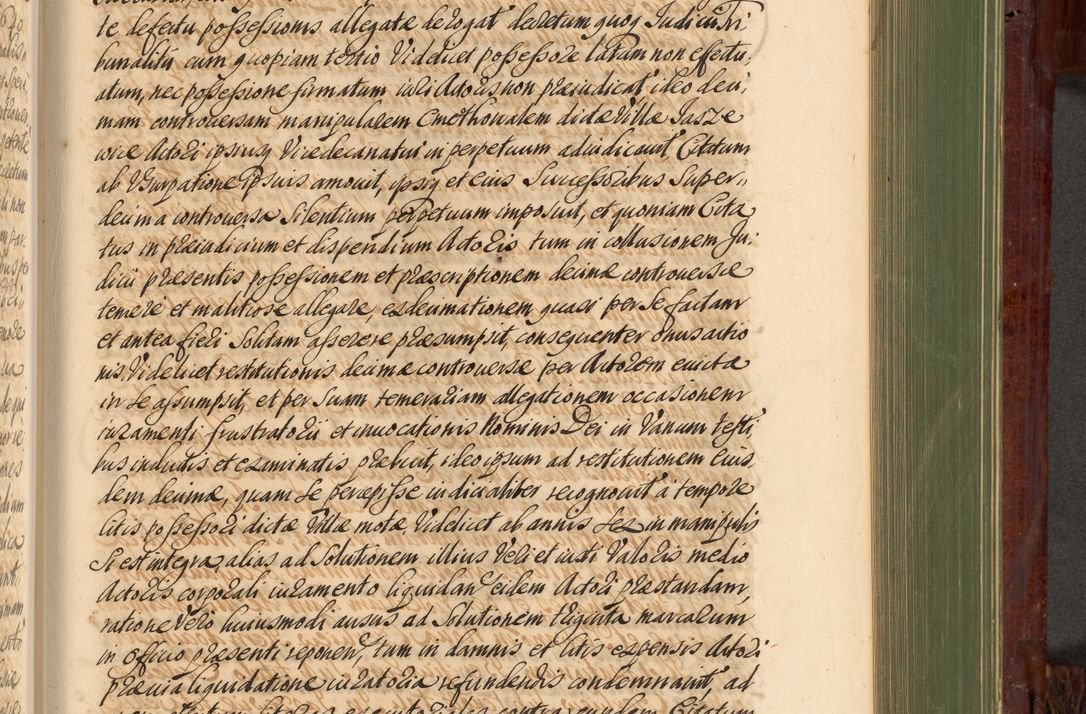 te defectu possessionis allegatæ derogat decretum quoq Judicii Tri„
bunalitii cum quopiam tertio Videlicet possessore latum non effectu„
atum, nec possessione firmatum iuri Actoris non præiudicat ideo deci„
mam controversam manipularem Cmethonalem dictæ Villæ Jasze
wice Actori ipsiusq Vicedecanatui in perpetuum adiudicavit Citatum
ab Vsurpatione ipsius amovit, ipsiq et eius Successoribus Super„
decima controversa Silentium perpetuum imposuit, et quoniam Cita
tus in præiudicium et dispendium Actoris tum in collusionem Ju„
dicii præsentis possessionem et præscriptionem decimæ controversæ
temere et malitiose allegare, exdecimationem quasi per se factam
et antea fieri Solitam asserere præsumpsit, consequenter Onus actio
nis, Videlicet restitutionis decimæ controversæ per Actorem evictæ
in se assumpsit, et per Suam temerariam allegationem occasionem
iuramenti frustratorii et invocationis Nominis Dei in Vanum testi„
bus inductis et examinatis præbuit, ideo ipsum ad restitutionem eius„
dem decimæ, quam se percepisse iudicialiter recognovit a tempore
litis possessori dictæ Villæ motæ, Videlicet ab annis sex in manipulis
Si est integra, alias ad Solutionem illius Veri et iusti Valoris medio
Actoris corporali iuramento liquidan eidem Actori præstandam,
ratione Vero huiusmodi ausus ad Solutionem triginta marcarum
in Officio præsenti reponen, tum in damnis et litis expensis Actori
prævia liquidatione iuratoria refundendis condemnavit, ad